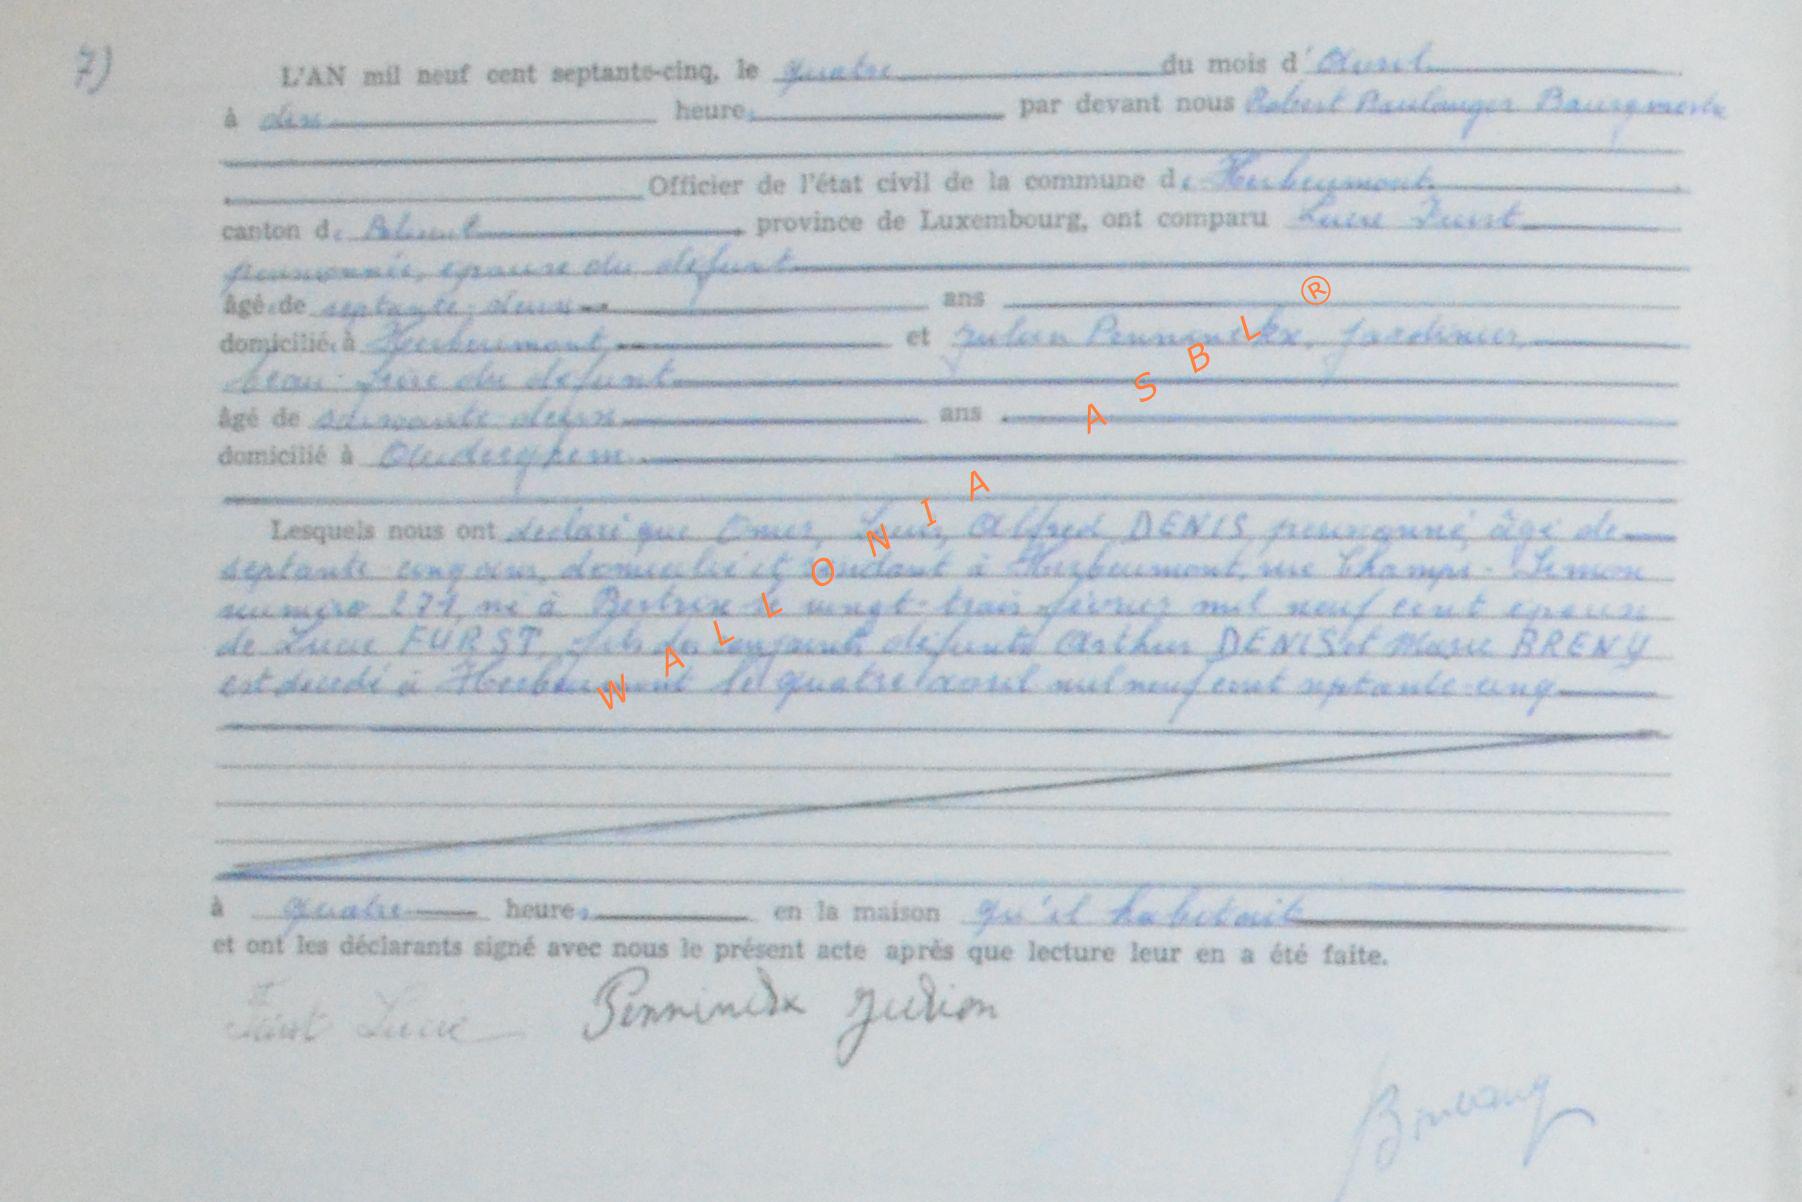 7)
L'AN mil neuf cent septante-cinq, le quatre du mois d'Avril
à dix heures par devant nous Robert Boulanger Bourgmestre
Officier de l'état civil de la commune de Herbeumont
canton de province de Luxembourg, ont comparu Lucie Furst
pensionnée, épouse du défunt
âgée de septante-deux ans
domiciliée à Herbeumont et Julien Penninckx, jardinier,
beau-frère du défunt
âgé de soixante-deux ans
domicilié à Auderghem
Lesquels nous ont déclaré que Omer, Alfred DENIS pensionné, âgé de
septante cinq ans, domicilié et résidant à Herbeumont, rue Champs-Simon
numéro 277, né à Bertrix le vingt-trois février mil neuf cent époux
de Lucie FURST, fils des conjoints défunts Arthur DENIS et Marie BRENY
est décédé à Herbeumont le quatre avril mil neuf cent septante-cinq
à quatre heures en la maison qu'il habitait
et ont les déclarants signé avec nous le présent acte après que lecture leur en a été faite.
Furst Lucie Penninckx Julien
WALLONIA ASBL ®